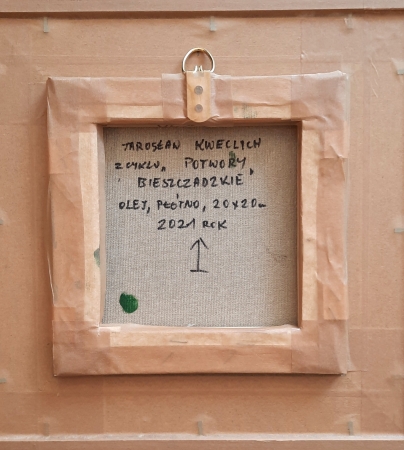 JAROSŁAW KWECLICH
Z CYKLU „POTWORY
BIESZCZADZKIE"
OLEJ, PŁÓTNO, 20x20
2021 ROK